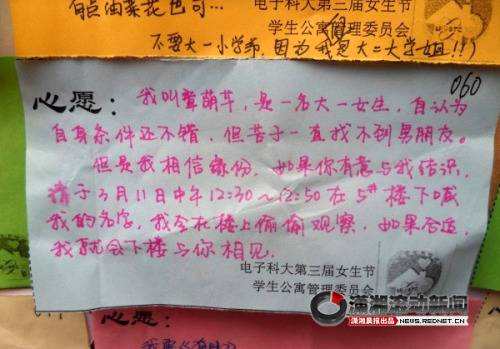 电子科大第三届女生节
学生公寓管理委员会
不要大一小学弟,因为我是大二大学姐!!)
060
心愿:我叫龚萌芊,是一名大一女生,自认为
自身条件还不错,但苦于一直找不到男朋友。
但是我相信缘份,如果你有意与我结识,
请于3月11日中午12:30~12:50在5#楼下喊
我的名字,我会在楼上偷偷观察,如果合适,
我就会下楼与你相见。
电子科大第三届女生节
学生公寓管理委员会
心愿:
潇湘滚动新闻
潇湘晨报出品 NEWS.REDNET.CN